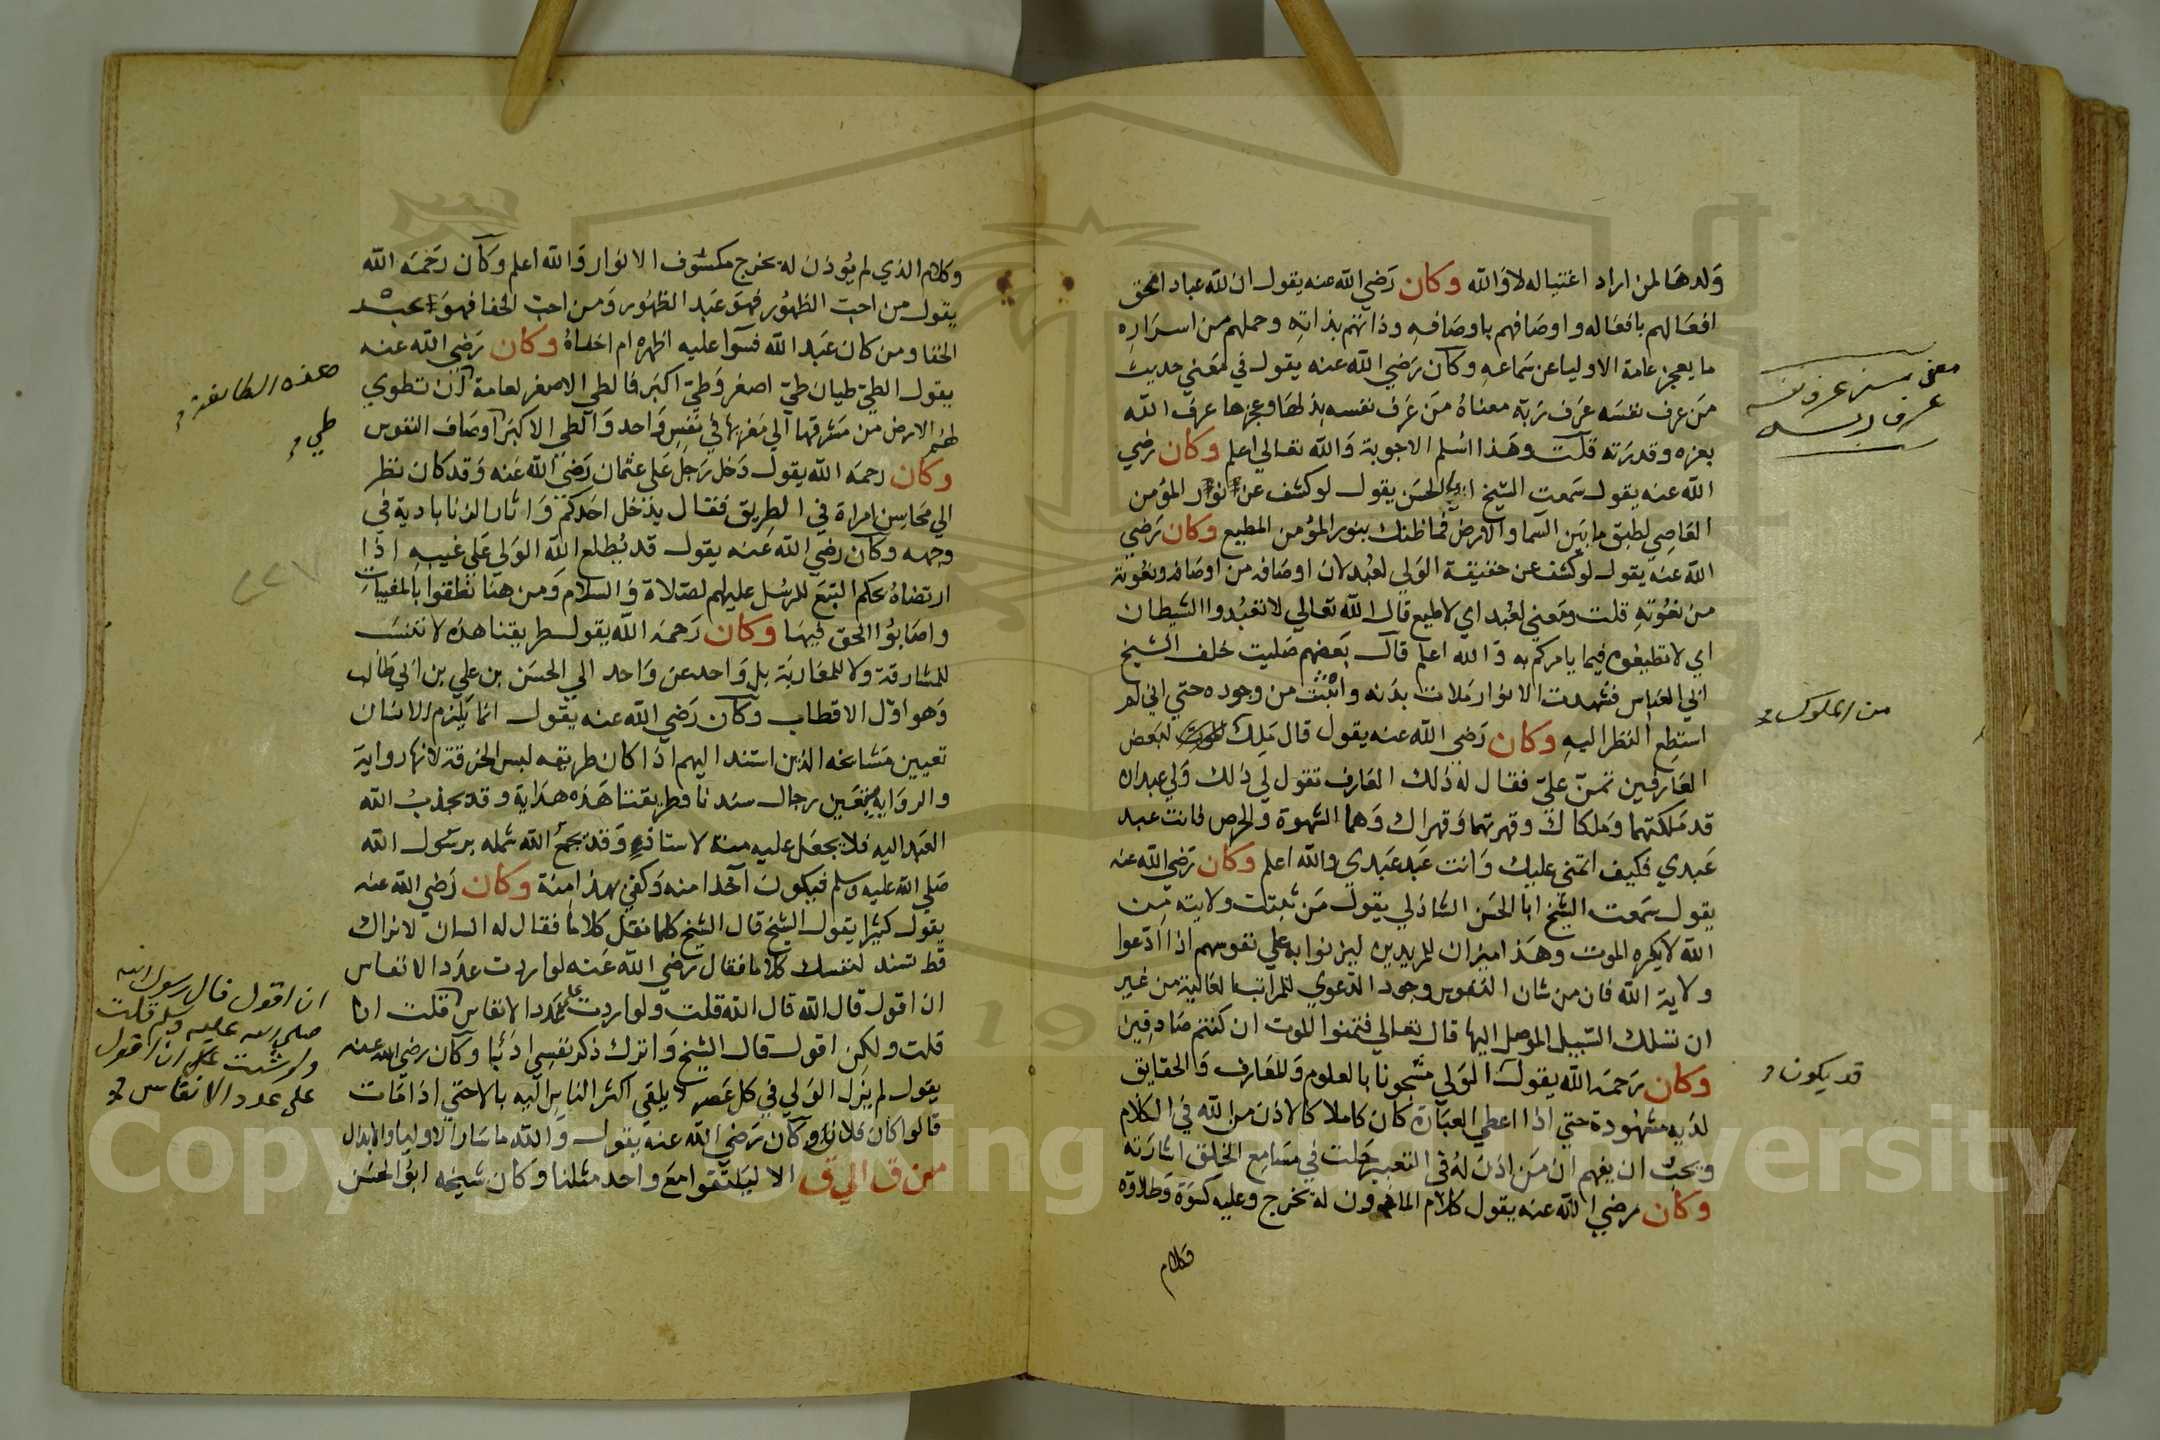 ولدها لمن اراد اغتياله لا والله وكان رضي الله عنه يقول ان لله عبادا محق
افعالهم بافعاله واوصافهم باوصافه وذاتهم بذاته وحملهم من اسراره
ما يعجز عامة الاوليا عن سماعه وكان رضي الله عنه يقول في معني حديث
من عرف نفسه عرف ربه معناه من عرف نفسه بذلها وعجزها عرف الله
بعزه وقدرته قلت وهذا اسلم الاجوبة والله تعالي اعلم وكان رضي
الله عنه يقول سمعت الشيخ ابا الحسن يقول لو كشف عن نور المؤمن
العاصي لطبق ما بين السما والارض فما ظنك بنور المؤمن المطيع وكان رضي
الله عنه يقول لو كشف عن حقيقة الولي لعبد لان اوصافه من اوصافه ونعوته
من نعوته قلت ومعني لعبد اي لاطيع قال الله تعالي لا تعبدوا الشيطان
اي لا تطيعوه فيما يامركم به والله اعلم قال بعضهم صليت خلف الشيخ
ابي العباس فشهدت الانوار ملات بدنه وانبثت من وجوده حتي اني لم
استطع النظر اليه وكان رضي الله عنه يقول قال ملك لبعض
العارفين تمن علي فقال له ذلك العارف تقول لي ذلك ولي عبدان
قد ملكتهما وملكاك وقهرتهما وقهراك وهما الشهوة والحرص فانت عبد
عبدي فكيف اتمني عليك وانت عبد عبدي والله اعلم وكان رضي الله عنه
يقول سمعت الشيخ ابا الحسن الشاذلي يقول من ثبتت ولايته من
الله لا يكره الموت وهذا ميزان للمريدين ليزنوا به علي نفوسهم اذا ادعوا
ولاية الله فان من شان النفوس وجود الدعوي للمراتب العالية من غير
ان تسلك السبيل الموصل اليها قال تعالي فتمنوا الموت ان كنتم صادقين
وكان رحمه الله يقول الولي مشحونا بالعلوم والمعارف والحقايق
لديه مشهودة حتي اذا اعطي العبارة كان كاملا كالاذن من الله في الكلام
ويجب ان يفهم ان من اذن له في التعبير حلت في مسامع الخلق اشارته
وكان رضي الله عنه يقول كلام الماذون له يخرج وعليه كسوة وطلاوة
وكلام
معنى من عرف نفسه
عرف ربه
من الملوك
قد يكون
وكلام الذي لم يؤذن له يخرج مكسوف الانوار والله اعلم وكان رحمه الله
يقول من احب الظهور فهو عبد الظهور ومن احب الخفا فهو عبد
الخفا ومن كان عبد الله فسوا عليه اظهره ام اخفاه وكان رضي الله عنه
يقول الطي طيان طي اصغر وطي اكبر فالطي الاصغر لعامة ان تطوي
لهم الارض من مشرقها الي مغربها في نفس واحد والطي الاكبر اوصاف النفوس
وكان رحمه الله يقول دخل رجل علي عثمان رضي الله عنه وقد كان نظر
الي محاسن امراة في الطريق فقال يدخل احدكم واثار الزنا بادية في
وجهه وكان رضي الله عنه يقول قد يطلع الله الولي علي غيبه اذا
ارتضاه بحكم التبع للرسل عليهم الصلاة والسلام ومن هنا نطقوا بالمغيبات
واصابوا الحق فيها وكان رحمه الله يقول طريقنا هذه لا تنسب
للمشارقة ولا للمغاربة بل واحد عن واحد الي الحسن بن علي بن ابي طالب
وهو اول الاقطاب وكان رضي الله عنه يقول انما يلزم الانسان
تعيين مشايخه الذين استند اليهم اذا كان طريقه لبس الخرقة لانها رواية
والرواية يتعين رجال سندنا وطريقتنا هذه هداية وقد يجذب الله
العبد اليه فلا يجعل عليه منة لاستاذ وقد يجمع الله شمله برسول الله
صلي الله عليه وسلم فيكون آخذا منه وكفي بهذا منة وكان رضي الله عنه
يقول كثيرا يقول الشيخ قال الشيخ كلما نقل كلاما فقال له انسان لا نراك
قط تسند لنفسك كلاما فقال رضي الله عنه لو اردت عدد الانفاس
ان اقول قال الله قال الله قلت ولو اردت علي عدد الانفاس قلت انا
قلت ولكن اقول قال الشيخ واترك ذكر نفسي ادبا وكان رضي الله عنه
يقول لم يزل الولي في كل عصر لا يلقي اكثر الناس اليه بالا حتي اذا مات
قالوا كان فلان وكان رضي الله عنه يقول والله ما سار الاوليا والابدال
من ق الي ق الا ليلتقوا مع واحد مثلنا وكان شيخه ابو الحسن
هذه الطائفة
طي
٢٢٧
ان اقول قال رسول الله
صلى الله عليه وسلم قلت
ولو شئت على ان اقول
على عدد الانفاس
Copyright © King Saud University